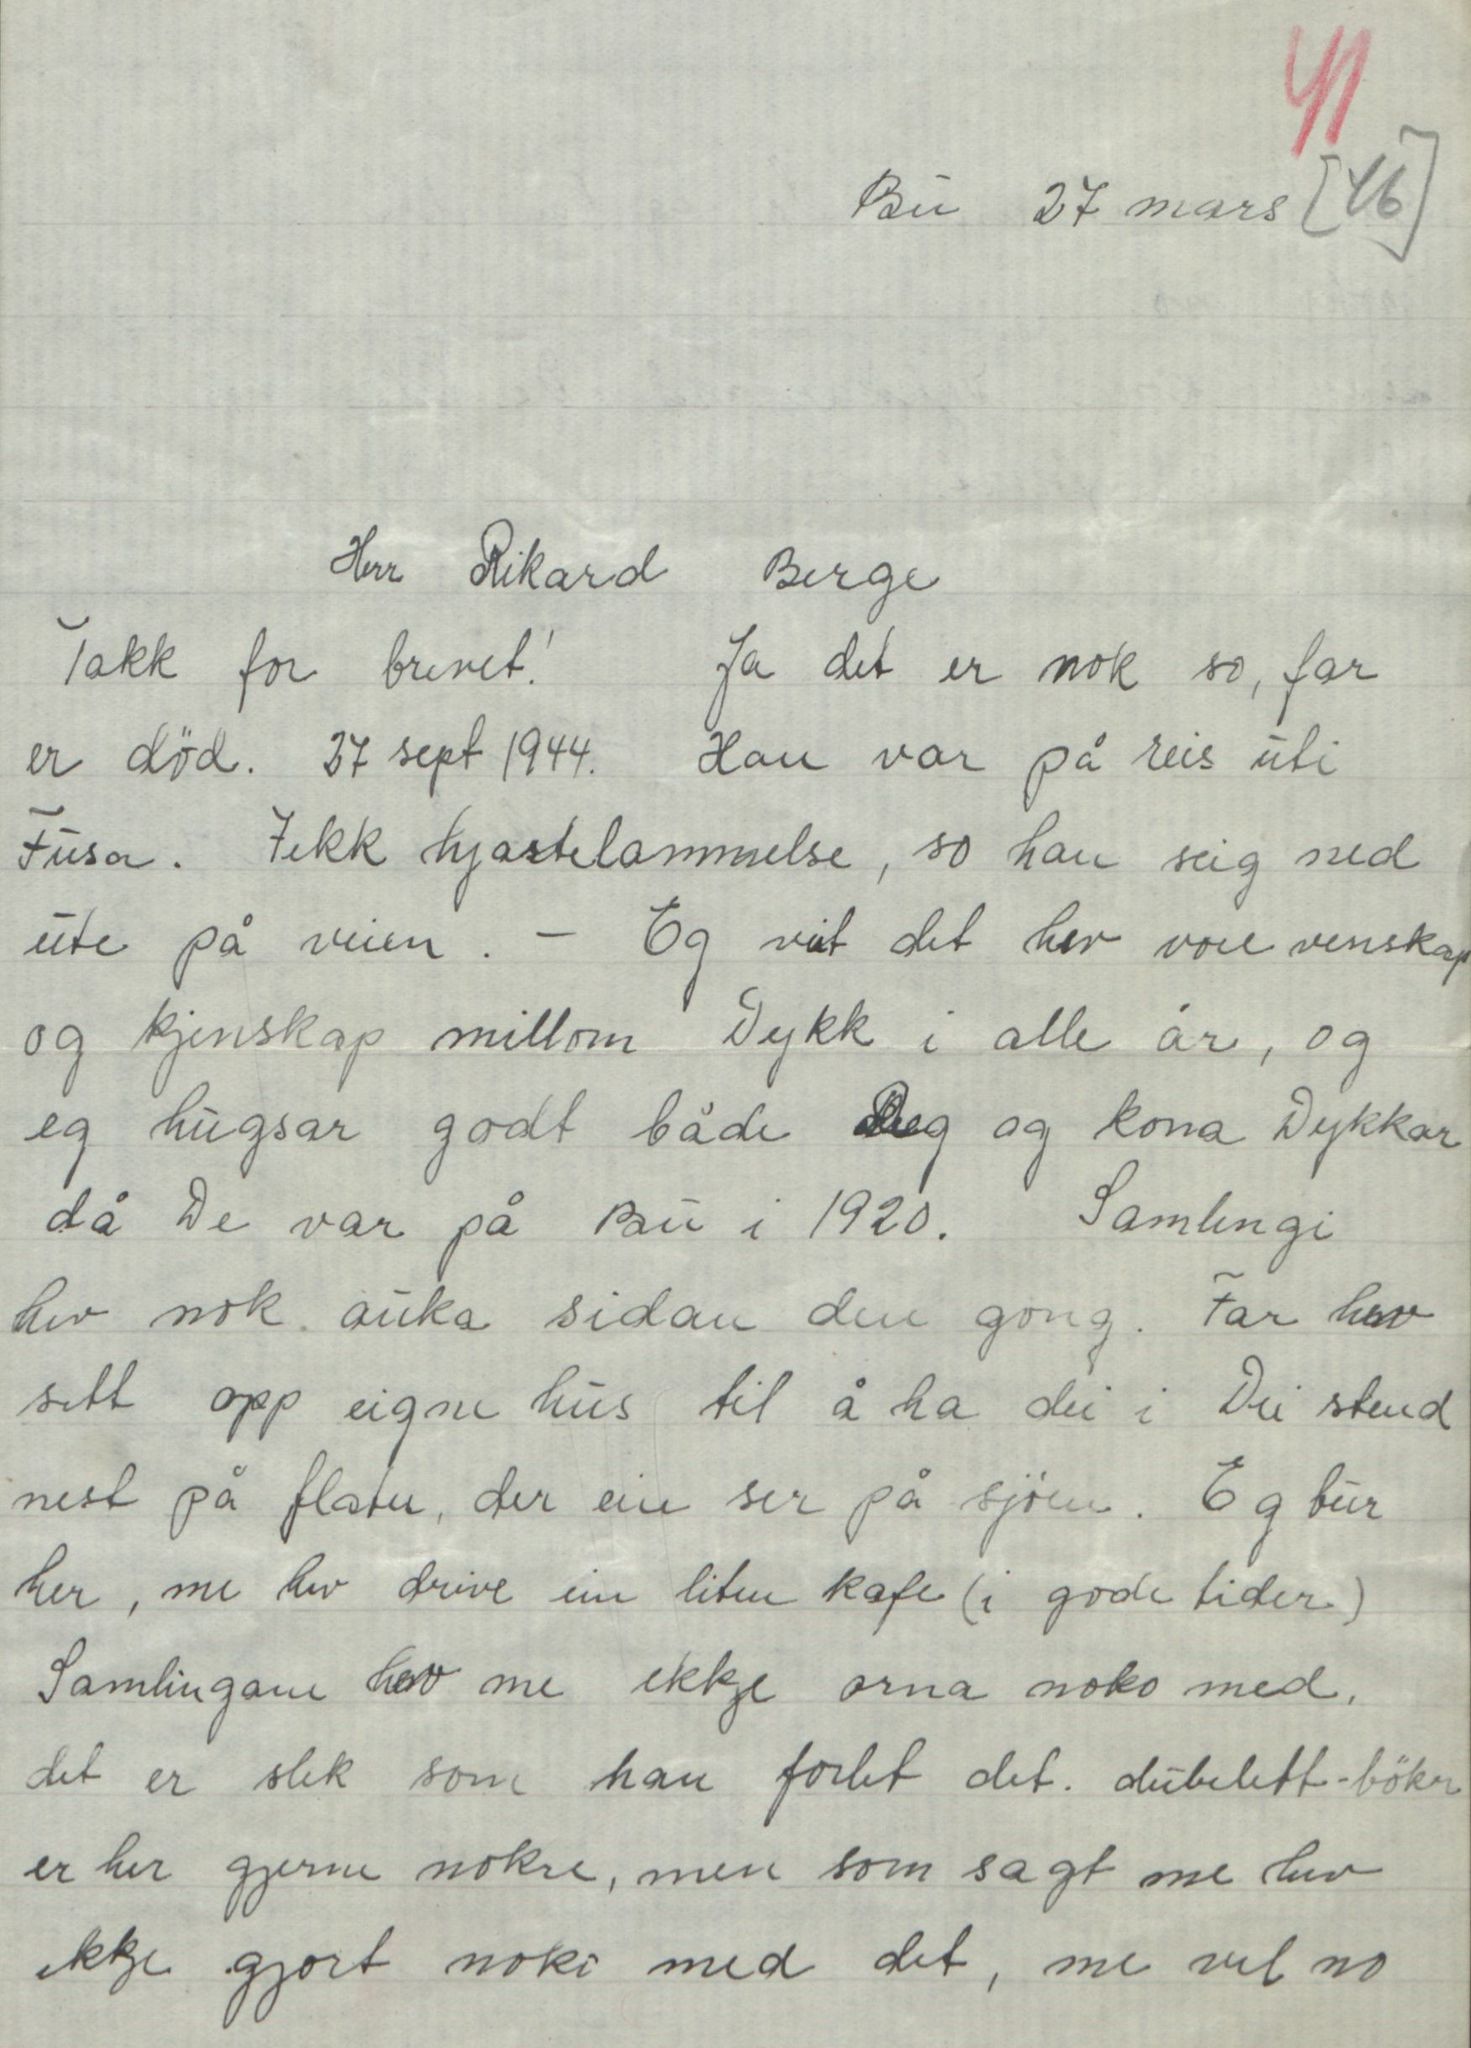 41
Bu 27 mars [46]
Herr Rikard Berge
Takk for brevet! Ja det er nok so, far
er död. 27 sept 1944. Han var på reis uti
Fusa. Fekk hjartelammelse, so han seig ned
ute på veien. – Eg veit det hev vore venskap
og kjenskap millom Dykk i alle år, og
eg hugsar godt både Deg og kona Dykkar
då De var på Bu i 1920. Samlingi
hev nok auka sidan den gong. Far hev
sett opp eigne hus til å ha dei i Dei stend
nest på flaten, der ein ser på sjöen. Eg bur
her, me hev drive ein liten kafe (i gode tider)
Samlingane hev me ikkje orna noko med,
det er slik som han forlet det. dubelett-böker
er her gjerne nokre, men som sagt me hev
ikkje gjort noki med det, me vil no